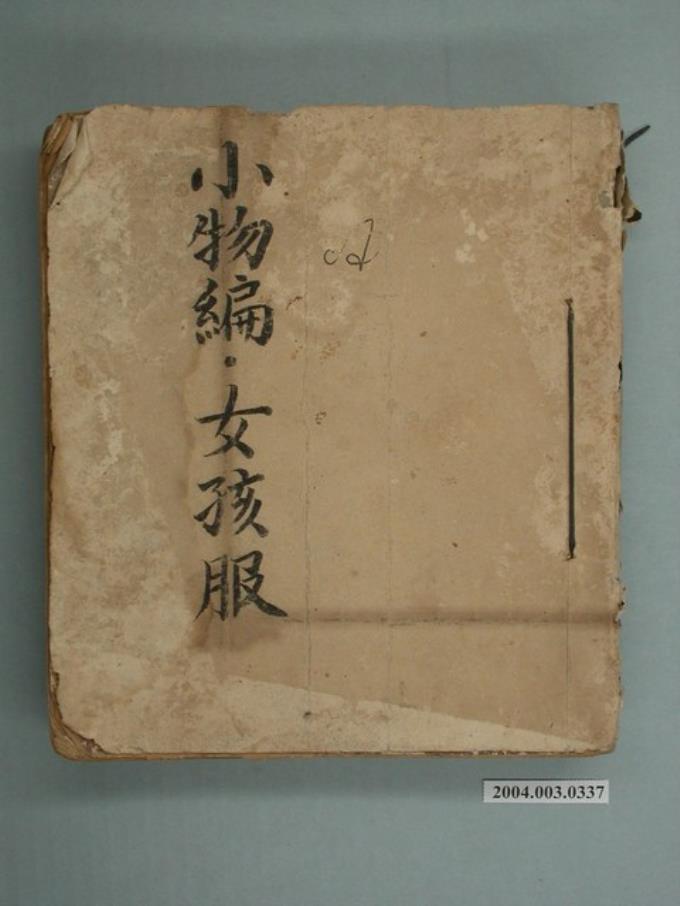 小物編・女孩服
2004.003.0337